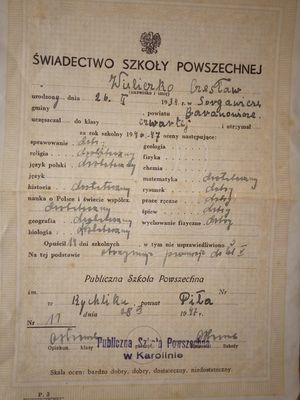 ŚWIADECTWO SZKOŁY POWSZECHNEJ
Wuliczko Czesław
(nazwisko i imię)
urodzony dnia 26. I 1932 r. w
gminy powiatu Baranowicze
uczęszczał do klasy czwartej i otrzymał
za rok szkolny 1946-47 oceny następujące:
sprawowanie dobr. geologia
religia dostateczny fizyka
język polski dostateczny chemia
język matematyka dostateczny
historia dostateczny rysunek dobry
nauka o Polsce i świecie współcz. prace ręczne dobry
dostateczny śpiew dobry
geografia dostateczny wychowanie fizyczne dobry
biologia dostateczny
Opuścił dni szkolnych w tym nie usprawiedliwiono
Na tej podstawie otrzymuje promocję do kl. V
Publiczna Szkoła Powszechna
im.
w Rychliku powiat Piła
Nr 11 dnia 28 1947 r.
Publiczna Szkoła Powszechna
w Karolinie
Opiekun klasy Szkoły
Skala ocen: bardzo dobry, dobry, dostateczny, niedostateczny
P. 3